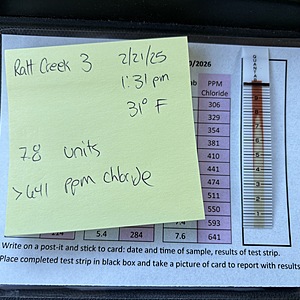 Ratt Creek 3 2/21/25
1:31 pm
31° F
7.8 units
>641 ppm chloride
0/2026
PPM
Chloride
306
329
354
381
410
441
474
511
550
7.4 593
5.4 284 7.6 641
QUANTAB
8
6
5
4
3
2
1
Write on a post-it and stick to card: date and time of sample, results of test strip.
Place completed test strip in black box and take a picture of card to report with results